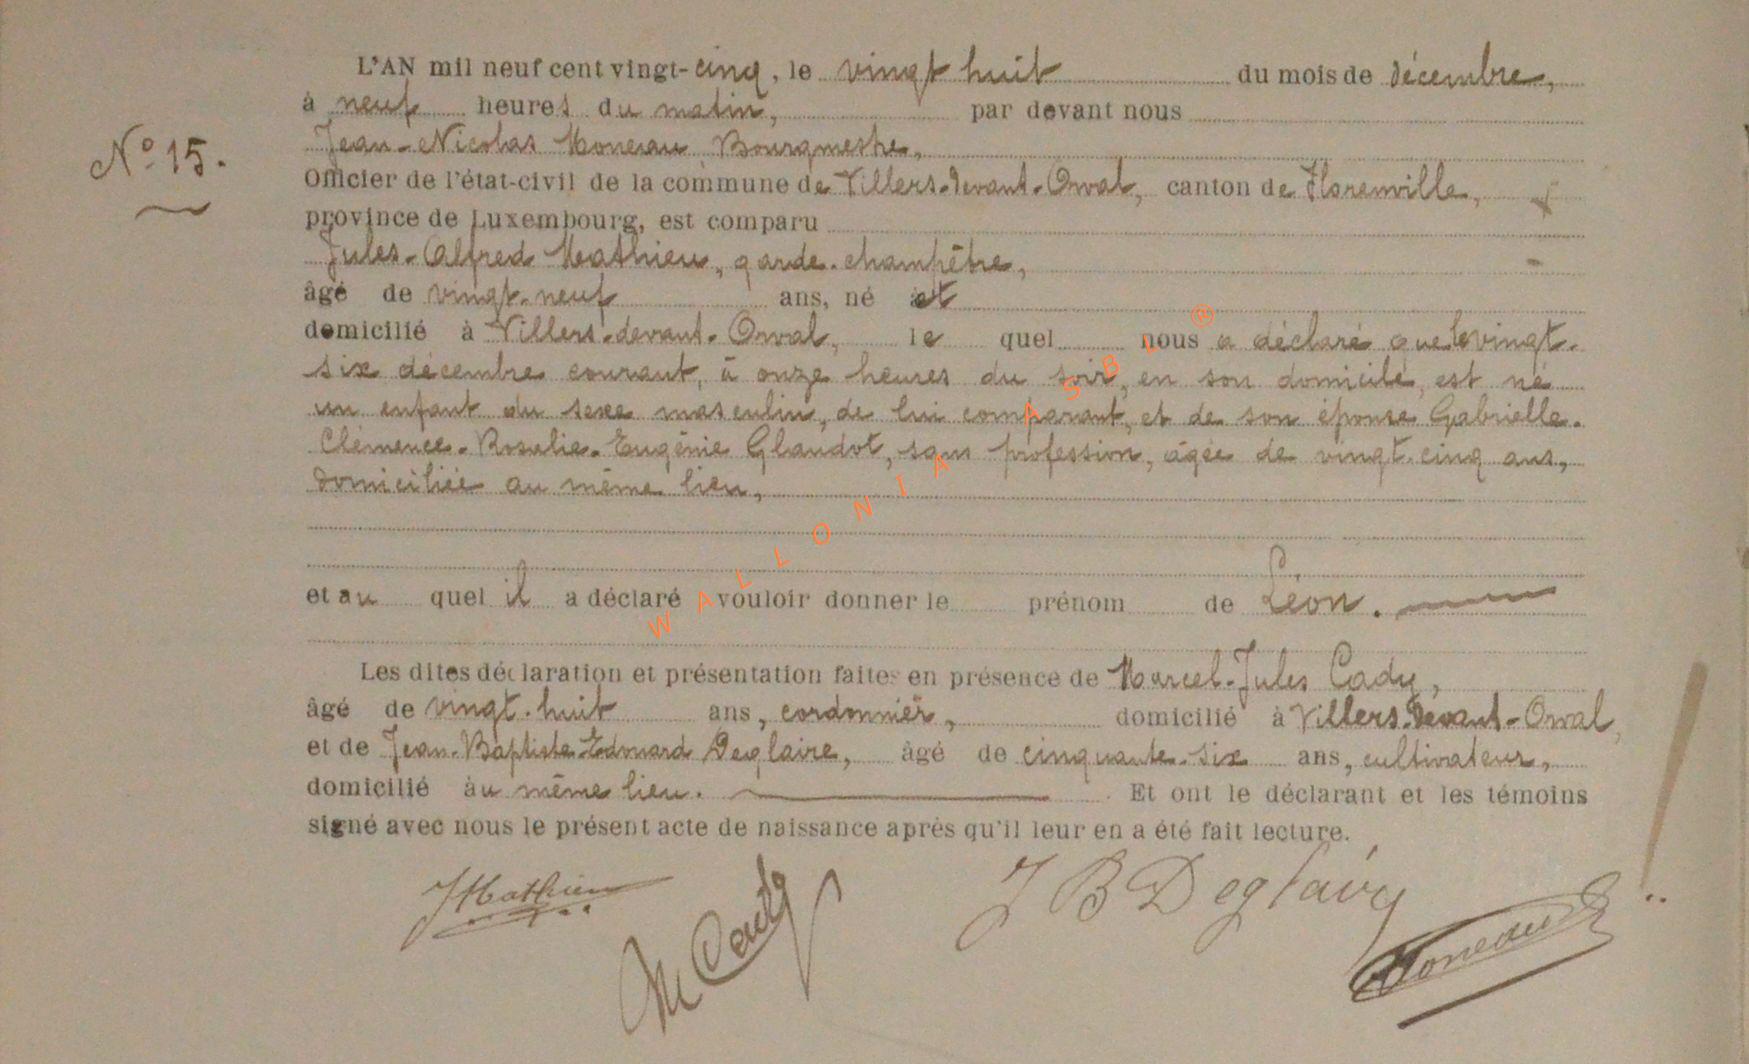 L'AN mil neuf cent vingt-cinq, le vingt huit du mois de décembre,
à neuf heures du matin, par devant nous
N° 15.
Jean-Nicolas Moneau Bourgmestre,
Officier de l'état-civil de la commune de Villers-devant-Orval, canton de Florenville,
province de Luxembourg, est comparu
Jules-Alfred Mathieu, garde-champêtre,
âgé de vingt-neuf ans, né et
domicilié à Villers-devant-Orval, le quel nous a déclaré que le vingt-
six décembre courant, à onze heures du soir, en son domicile, est né
un enfant du sexe masculin, de lui comparant, et de son épouse Gabrielle-
Clémence-Rosalie-Eugénie Glaudot, sans profession, âgée de vingt-cinq ans,
domiciliée au même lieu,
et au quel il a déclaré vouloir donner le prénom de Léon.
Les dites déclaration et présentation faites en présence de Marcel-Jules Cady,
âgé de vingt-huit ans, cordonnier, domicilié à Villers-devant-Orval,
et de Jean-Baptiste-Edouard Deglaire, âgé de cinquante-six ans, cultivateur,
domicilié au même lieu. Et ont le déclarant et les témoins
signé avec nous le présent acte de naissance après qu'il leur en a été fait lecture.
JMathieu
M Cady
J B Deglaire
Moneau
WALLONIA ASBL ®